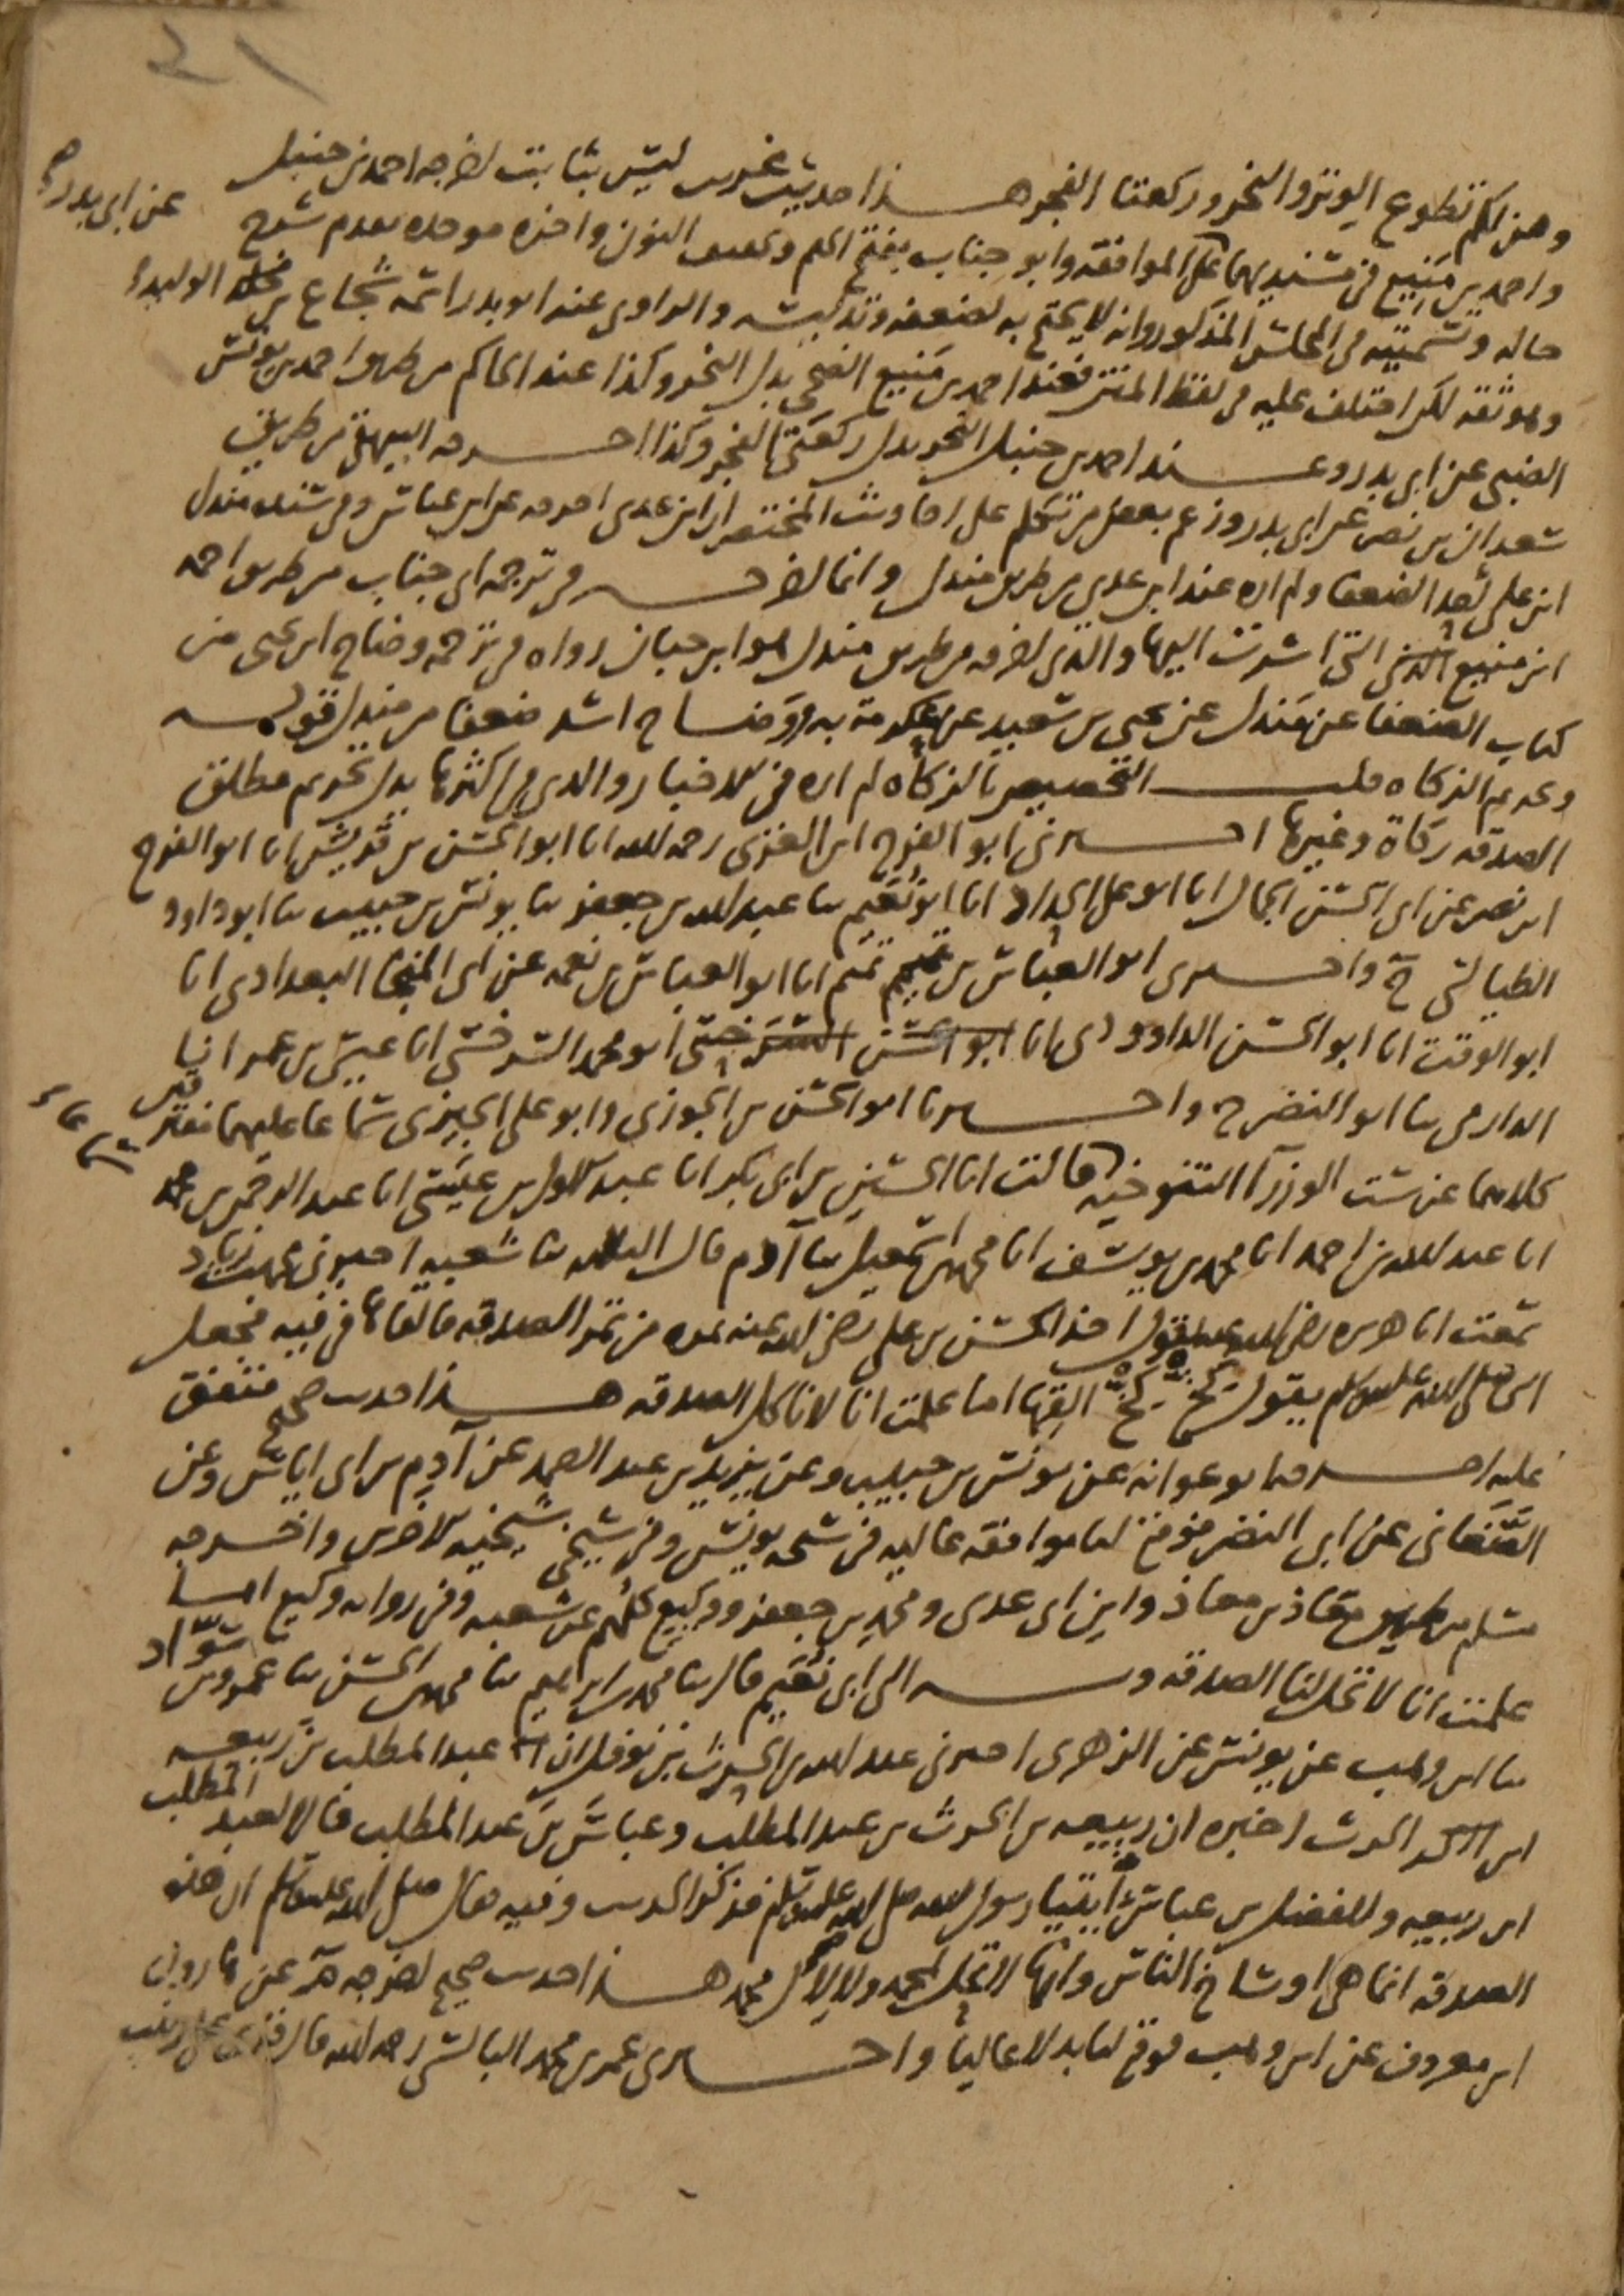 ٤١
وهن لكم تطوع الوتر والنحر وركعتا الفجر هذا حديث غريب ليس بثابت اخرجه احمد بن حنبل
واحمد بن منيع في مسنديهما على الموافقة وابو جناب بفتح الجيم وتخفيف النون واخره موحده تقدم شرح عن ابي بدر
حاله وتسميته في المجلس المذكور وانه لا يحتج به لضعفه وتدليسه والراوي عنه ابو بدر اسمه شجاع بن الوليد
وهو ثقه لكن اختلف عليه في لفظ المتن فعند احمد بن منيع الضحى بدل النحر وكذا عند الحاكم من طريق احمد بن يونس
الضبي عن ابي بدر وعند احمد بن حنبل النحر بدل ركعتي الفجر وكذا اخرجه البيهقي من طريق
سعدان بن نصر عن ابي بدر وزعم بعض من تكلم على احاديث المختصر ان ابن عدي اخرجه عن ابن عباس وفي سنده مندل
ابن علي احد الضعفا ولم اره عند ابن عدي من طريق مندل وانما اخرجه في ترجمه ابي جناب من طريق احمد
ابن منيع التي اشرت اليها والذي اخرجه من طريق مندل هو ابن حبان رواه في ترجمه وضاح بن يحيى من
كتاب الضعفا عن مندل عن يحيى بن سعيد عن عكرمة به ووضاح اشد ضعفا من مندل قوله
وتحريم الزكاه قلت التخصيص بالزكاه لم اره في الاخبار والذي في اكثرها بدل تحريم مطلق
الصدقه زكاة وغيرها اخبرني ابو الفرج ابن الغزي رحمه الله انا ابو الحسن بن قريش انا ابو الفرج
ابن نصر عن ابي الحسن الجمال انا ابو علي الحداد انا ابو نعيم ثنا عبد الله بن جعفر ثنا يونس بن حبيب ثنا ابو داود
الطيالسي ح واخبرني ابو العباس بن تميم انا ابو العباس بن نعمه عن ابي المنجا البغدادي انا
ابو الوقت انا ابو الحسن الداوودي انا ابو محمد السرخسي انا عيسى بن عمر انا
الدارمي ثنا ابو النضر ح واخبرنا ابو الحسن بن الجوزي وابو علي الجيزي سماعا عليهما مفترقين
كلاهما عن ست الوزرا التنوخيه قالت انا الحسين بن ابي بكر انا عبد الاول بن عيسى انا عبد الرحمن بن محمد
انا عبد الله بن احمد انا محمد بن يوسف انا محمد بن اسمعيل ثنا آدم قال الثلاثه ثنا شعبه اخبرني محمد بن زياد
سمعت ابا هريره رضي الله عنه يقول اخذ الحسن بن علي رضي الله عنه تمره من تمر الصدقه فالقاها في فيه فجعل
النبي صلى الله عليه وسلم يقول كخ كخ القها اما علمت انا لا ناكل الصدقه هذا حديث صحيح متفق
عليه اخرجه ابو عوانه عن يونس بن حبيب وعن يزيد بن عبد الصمد عن آدم بن ابي اياس وعن
الصغاني عن ابي النضر فوقع لنا موافقه عاليه في شيخه يونس وفي شيخي شيخيه الاخرين واخرجه
مسلم من طريق معاذ بن معاذ وابن ابي عدي ومحمد بن جعفر ووكيع كلهم عن شعبه وفي روايه وكيع اما
علمت انا لا تحل لنا الصدقه وبه الى ابي نعيم قال ثنا محمد بن ابراهيم ثنا محمد بن الحسن ثنا عمرو بن سواد
ثنا ابن وهب عن يونس عن الزهري اخبرني عبد الله بن الحرث بن نوفل ان عبد المطلب بن ربيعه
ابن الحرث اخبره ان ربيعه بن الحرث بن عبد المطلب وعباس بن عبد المطلب قالا لعبد المطلب
ابن ربيعه وللفضل بن عباس ائتيا رسول الله صلى الله عليه وسلم فذكر الحديث وفيه فقال صلى الله عليه وسلم ان هذه
الصدقه انما هي اوساخ الناس وانها لا تحل لمحمد ولا لآل محمد هذا حديث صحيح اخرجه م عن هارون
ابن معروف عن ابن وهب فوقع لنا بدلا عاليا واخبرني عمر بن محمد البالسي رحمه الله قال قرئ على زينب